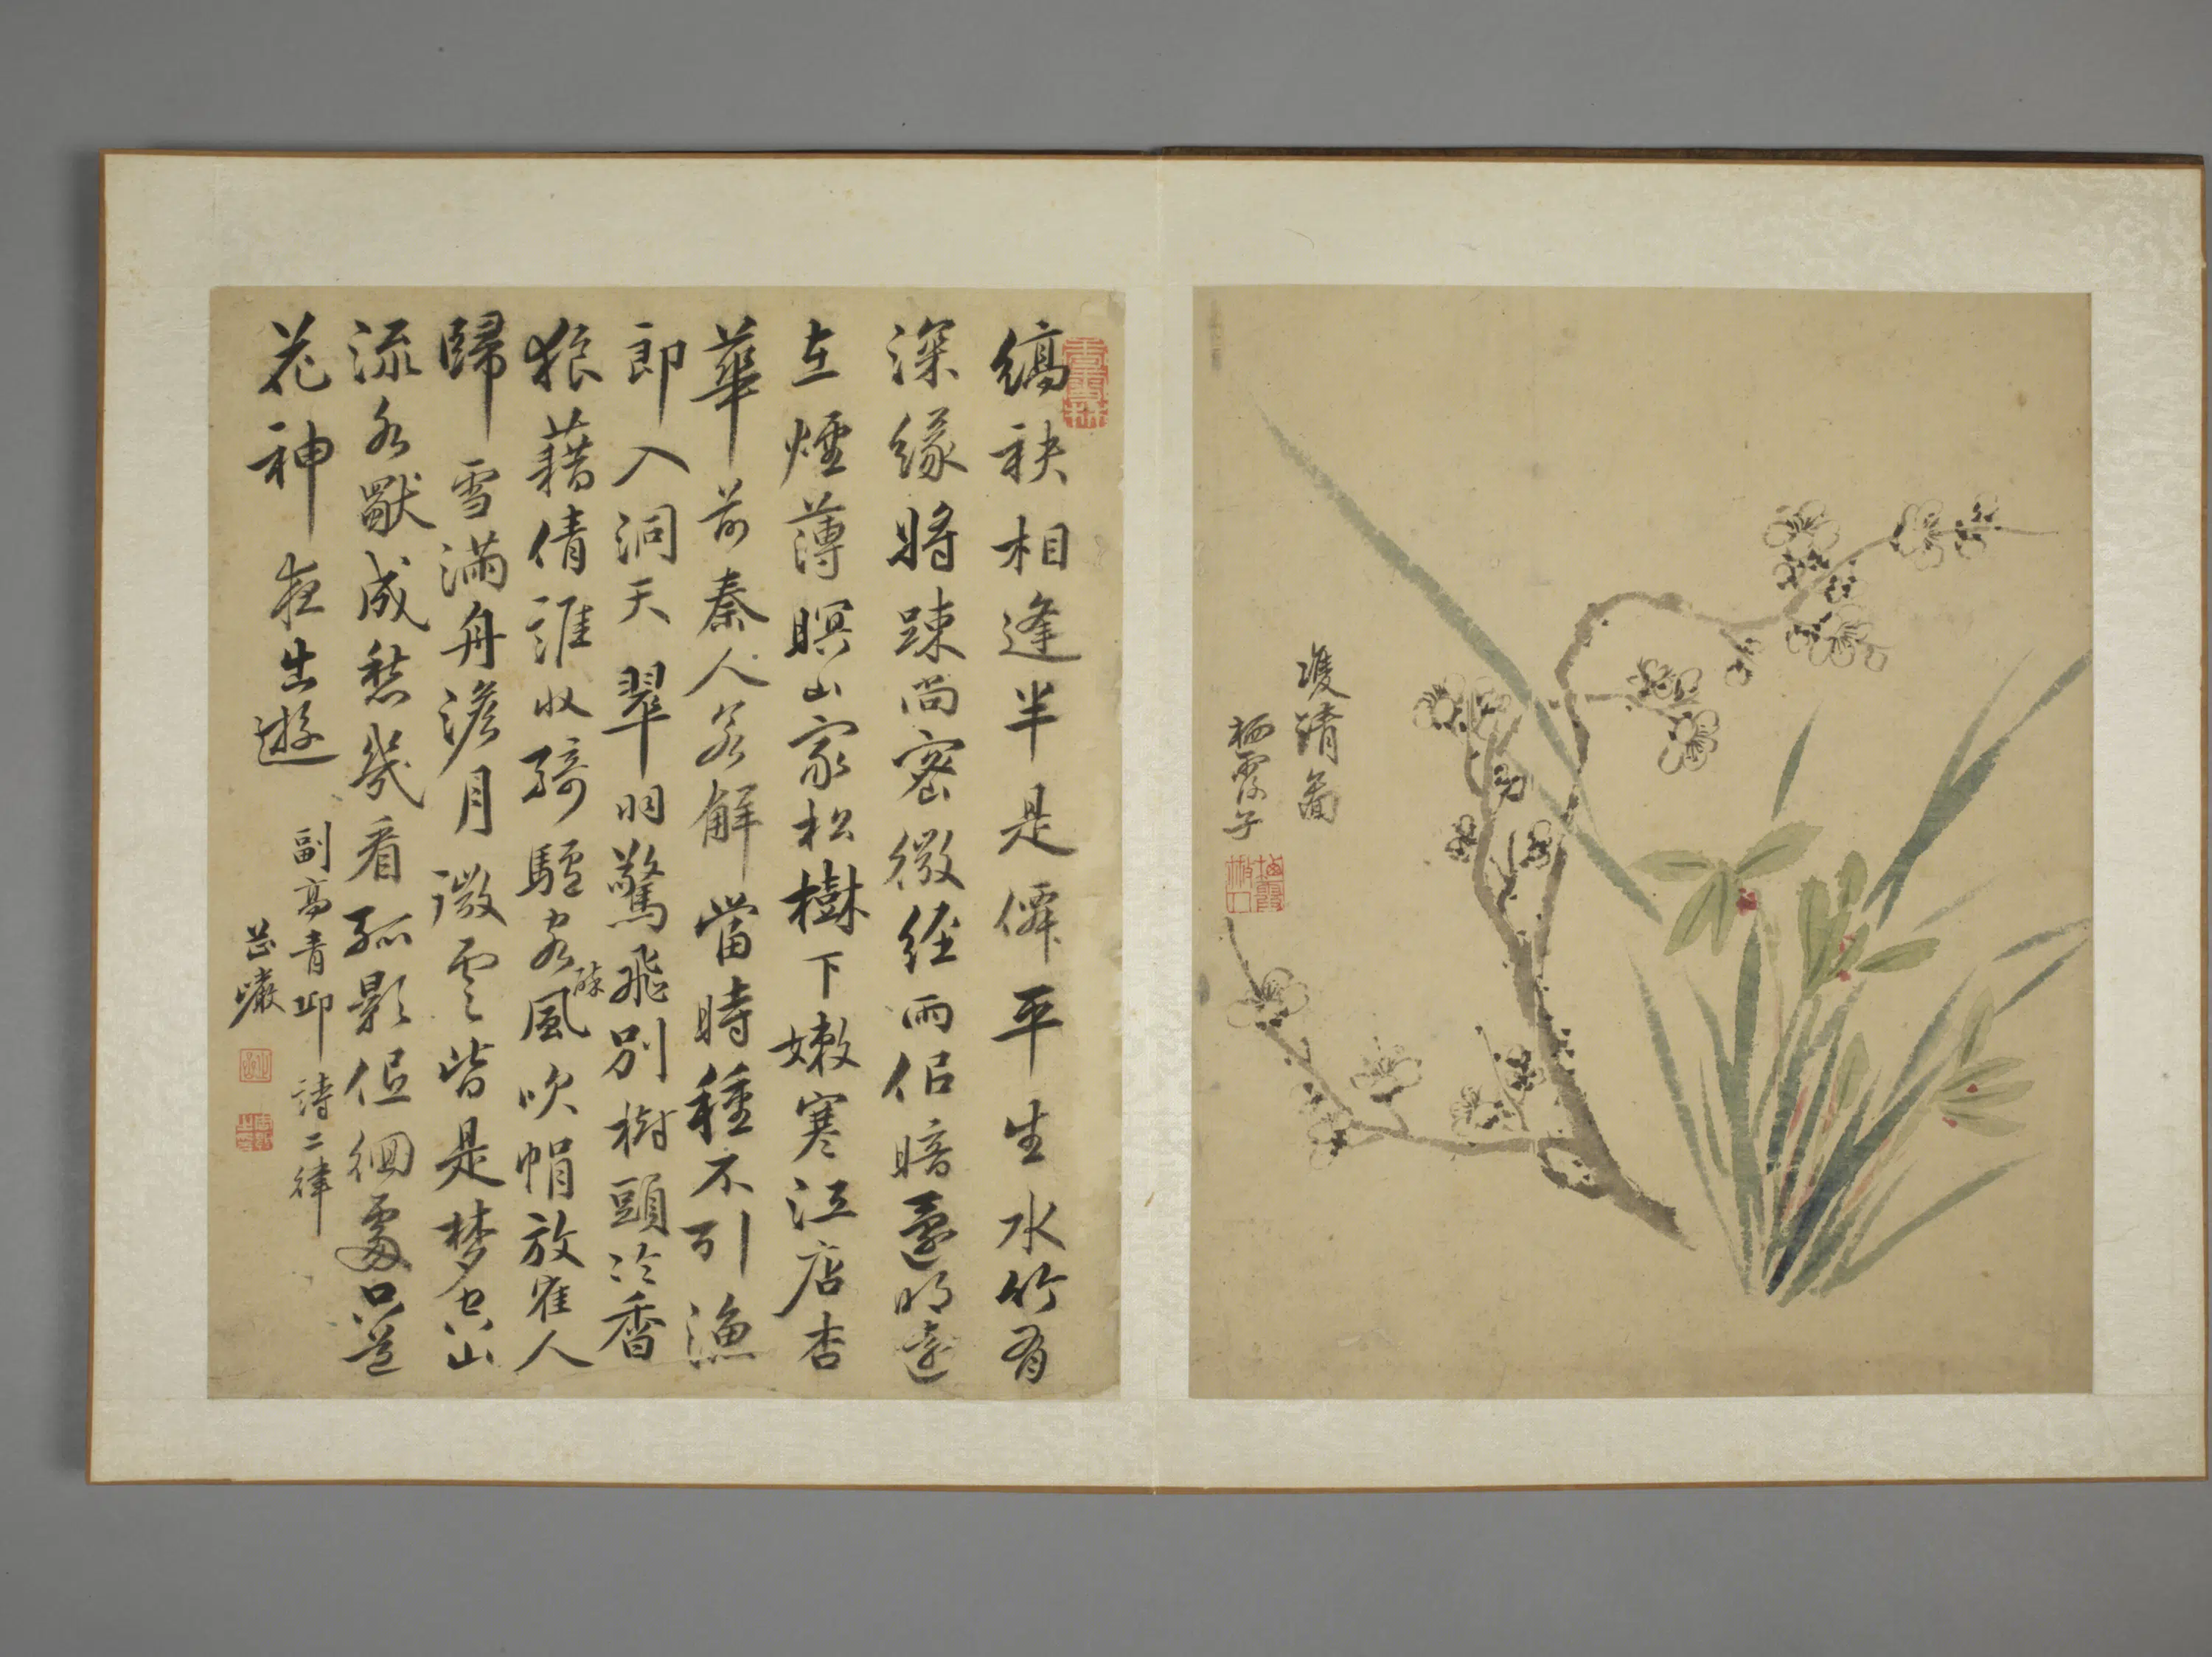 雙清圖
栖霞子
縞袂相逢半是僊平生水竹有
深緣將踈尚密微經雨佀暗還明遠
在煙薄暝山家松樹下嫩寒江店杏
華前秦人若解當時種不引漁
郎入洞天翠羽驚飛別樹頭冷香
狼藉倩誰收騎驢客醉風吹帽放隺人
歸雪滿舟澹月微雲皆是夢空山
流水獸成愁幾看孤影低徊處只道
花神夜出遊
副高青邱詩二律
芷巖